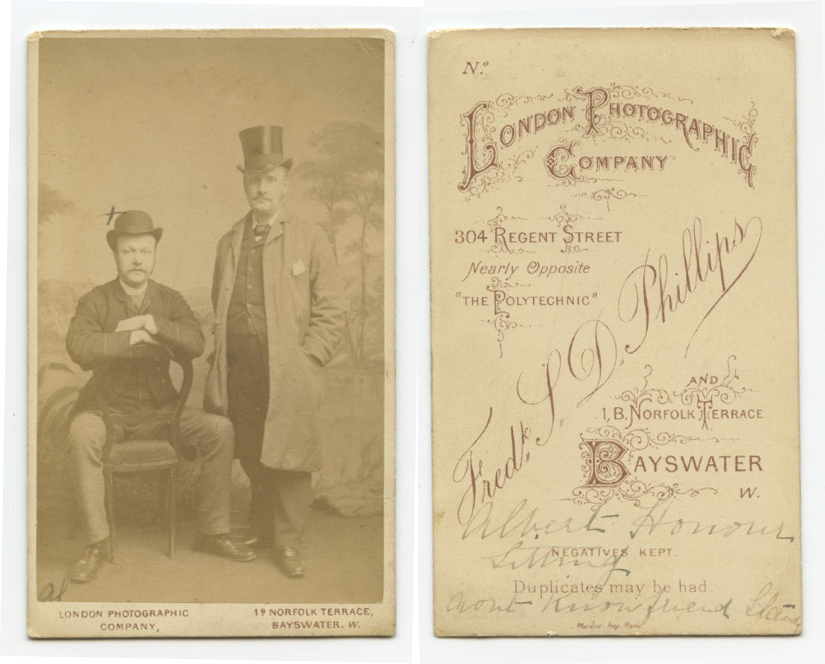 al
LONDON PHOTOGRAPHIC
COMPANY,
1B NORFOLK TERRACE,
BAYSWATER. W.
No.
LONDON PHOTOGRAPHIC
COMPANY
304 REGENT STREET
Nearly Opposite
"THE POLYTECHNIC"
Fredk. S. D. Phillips
AND
1, B. NORFOLK TERRACE
BAYSWATER
W.
Albert Honour
Sitting
NEGATIVES KEPT.
Duplicates may be had.
dont know friend